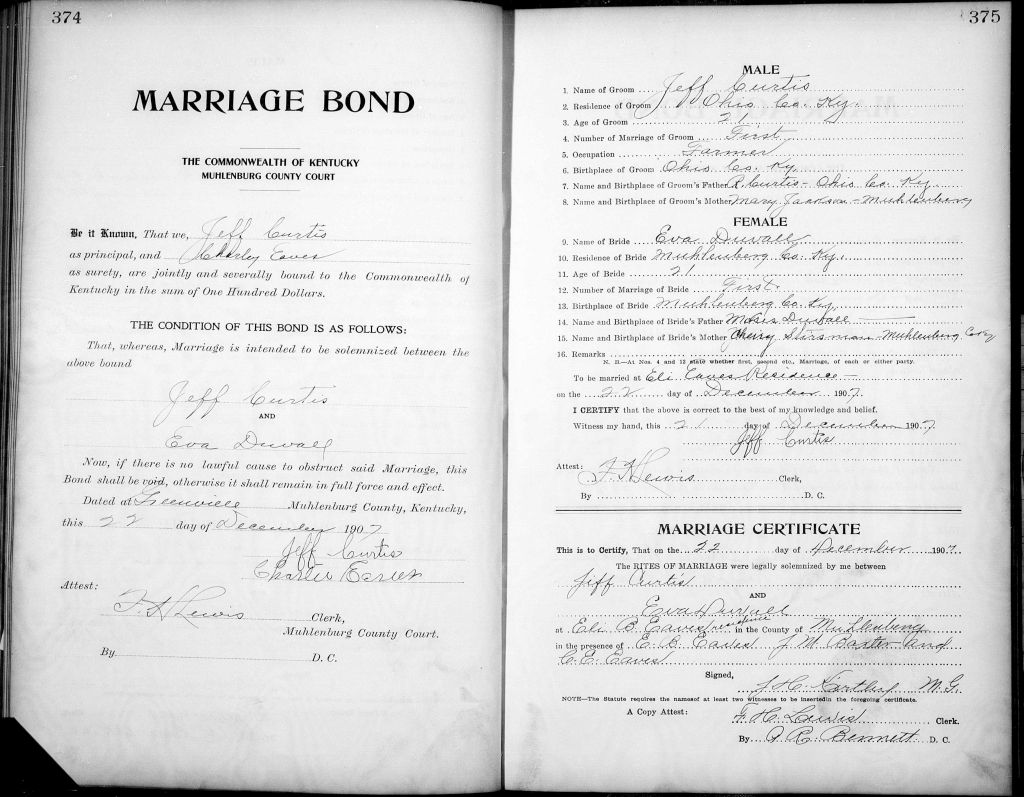 374
MARRIAGE BOND
THE COMMONWEALTH OF KENTUCKY
MUHLENBURG COUNTY COURT
Be it Known, That we, Jeff Curtis
as principal, and Charley Eaves
as surety, are jointly and severally bound to the Commonwealth of
Kentucky in the sum of One Hundred Dollars.
THE CONDITION OF THIS BOND IS AS FOLLOWS:
That, whereas, Marriage is intended to be solemnized between the
above bound
Jeff Curtis
AND
Eva Duvall
Now, if there is no lawful cause to obstruct said Marriage, this
Bond shall be void, otherwise it shall remain in full force and effect.
Dated at Greenville Muhlenburg County, Kentucky,
this 22 day of December 1907
Jeff Curtis
Charlie
Attest:
Lewis Clerk,
Muhlenburg County Court.
By D. C.
375
MALE
1. Name of Groom Jeff Curtis
2. Residence of Groom Ohio Co. Ky.
3. Age of Groom 21
4. Number of Marriage of Groom First
5. Occupation Farmer
6. Birthplace of Groom Ohio Co. Ky.
7. Name and Birthplace of Groom's Father Curtis - Ohio Co. Ky
8. Name and Birthplace of Groom's Mother Mary Jackson - Muhlenberg
FEMALE
9. Name of Bride Eva Duvall
10. Residence of Bride Muhlenberg Co. Ky.
11. Age of Bride 21
12. Number of Marriage of Bride First.
13. Birthplace of Bride Muhlenberg Co. Ky
14. Name and Birthplace of Bride's Father Duvall
15. Name and Birthplace of Bride's Mother Muhlenberg Co Ky
16. Remarks
N. B.—At Nos. 4 and 12 state whether first, second etc., Marriage, of each or either party.
To be married at Eli Eaves Residence —
on the 22 day of December 1907.
I CERTIFY that the above is correct to the best of my knowledge and belief.
Witness my hand, this 21 day of December 1907
Jeff Curtis
Attest:
Lewis Clerk,
By D. C.
MARRIAGE CERTIFICATE
This is to Certify, That on the 22 day of December 1907.
The RITES OF MARRIAGE were legally solemnized by me between
Jeff Curtis
AND
Eva Duvall
at Eli B Eaves residence in the County of Muhlenberg
in the presence of E. B. Eaves J. M. and
C. C. Eaves
Signed,
M. G.
NOTE—The Statute requires the namesof at least two witnesses to be insertedin the foregoing certificate.
A Copy Attest: Lewis Clerk.
By Bennett D. C.